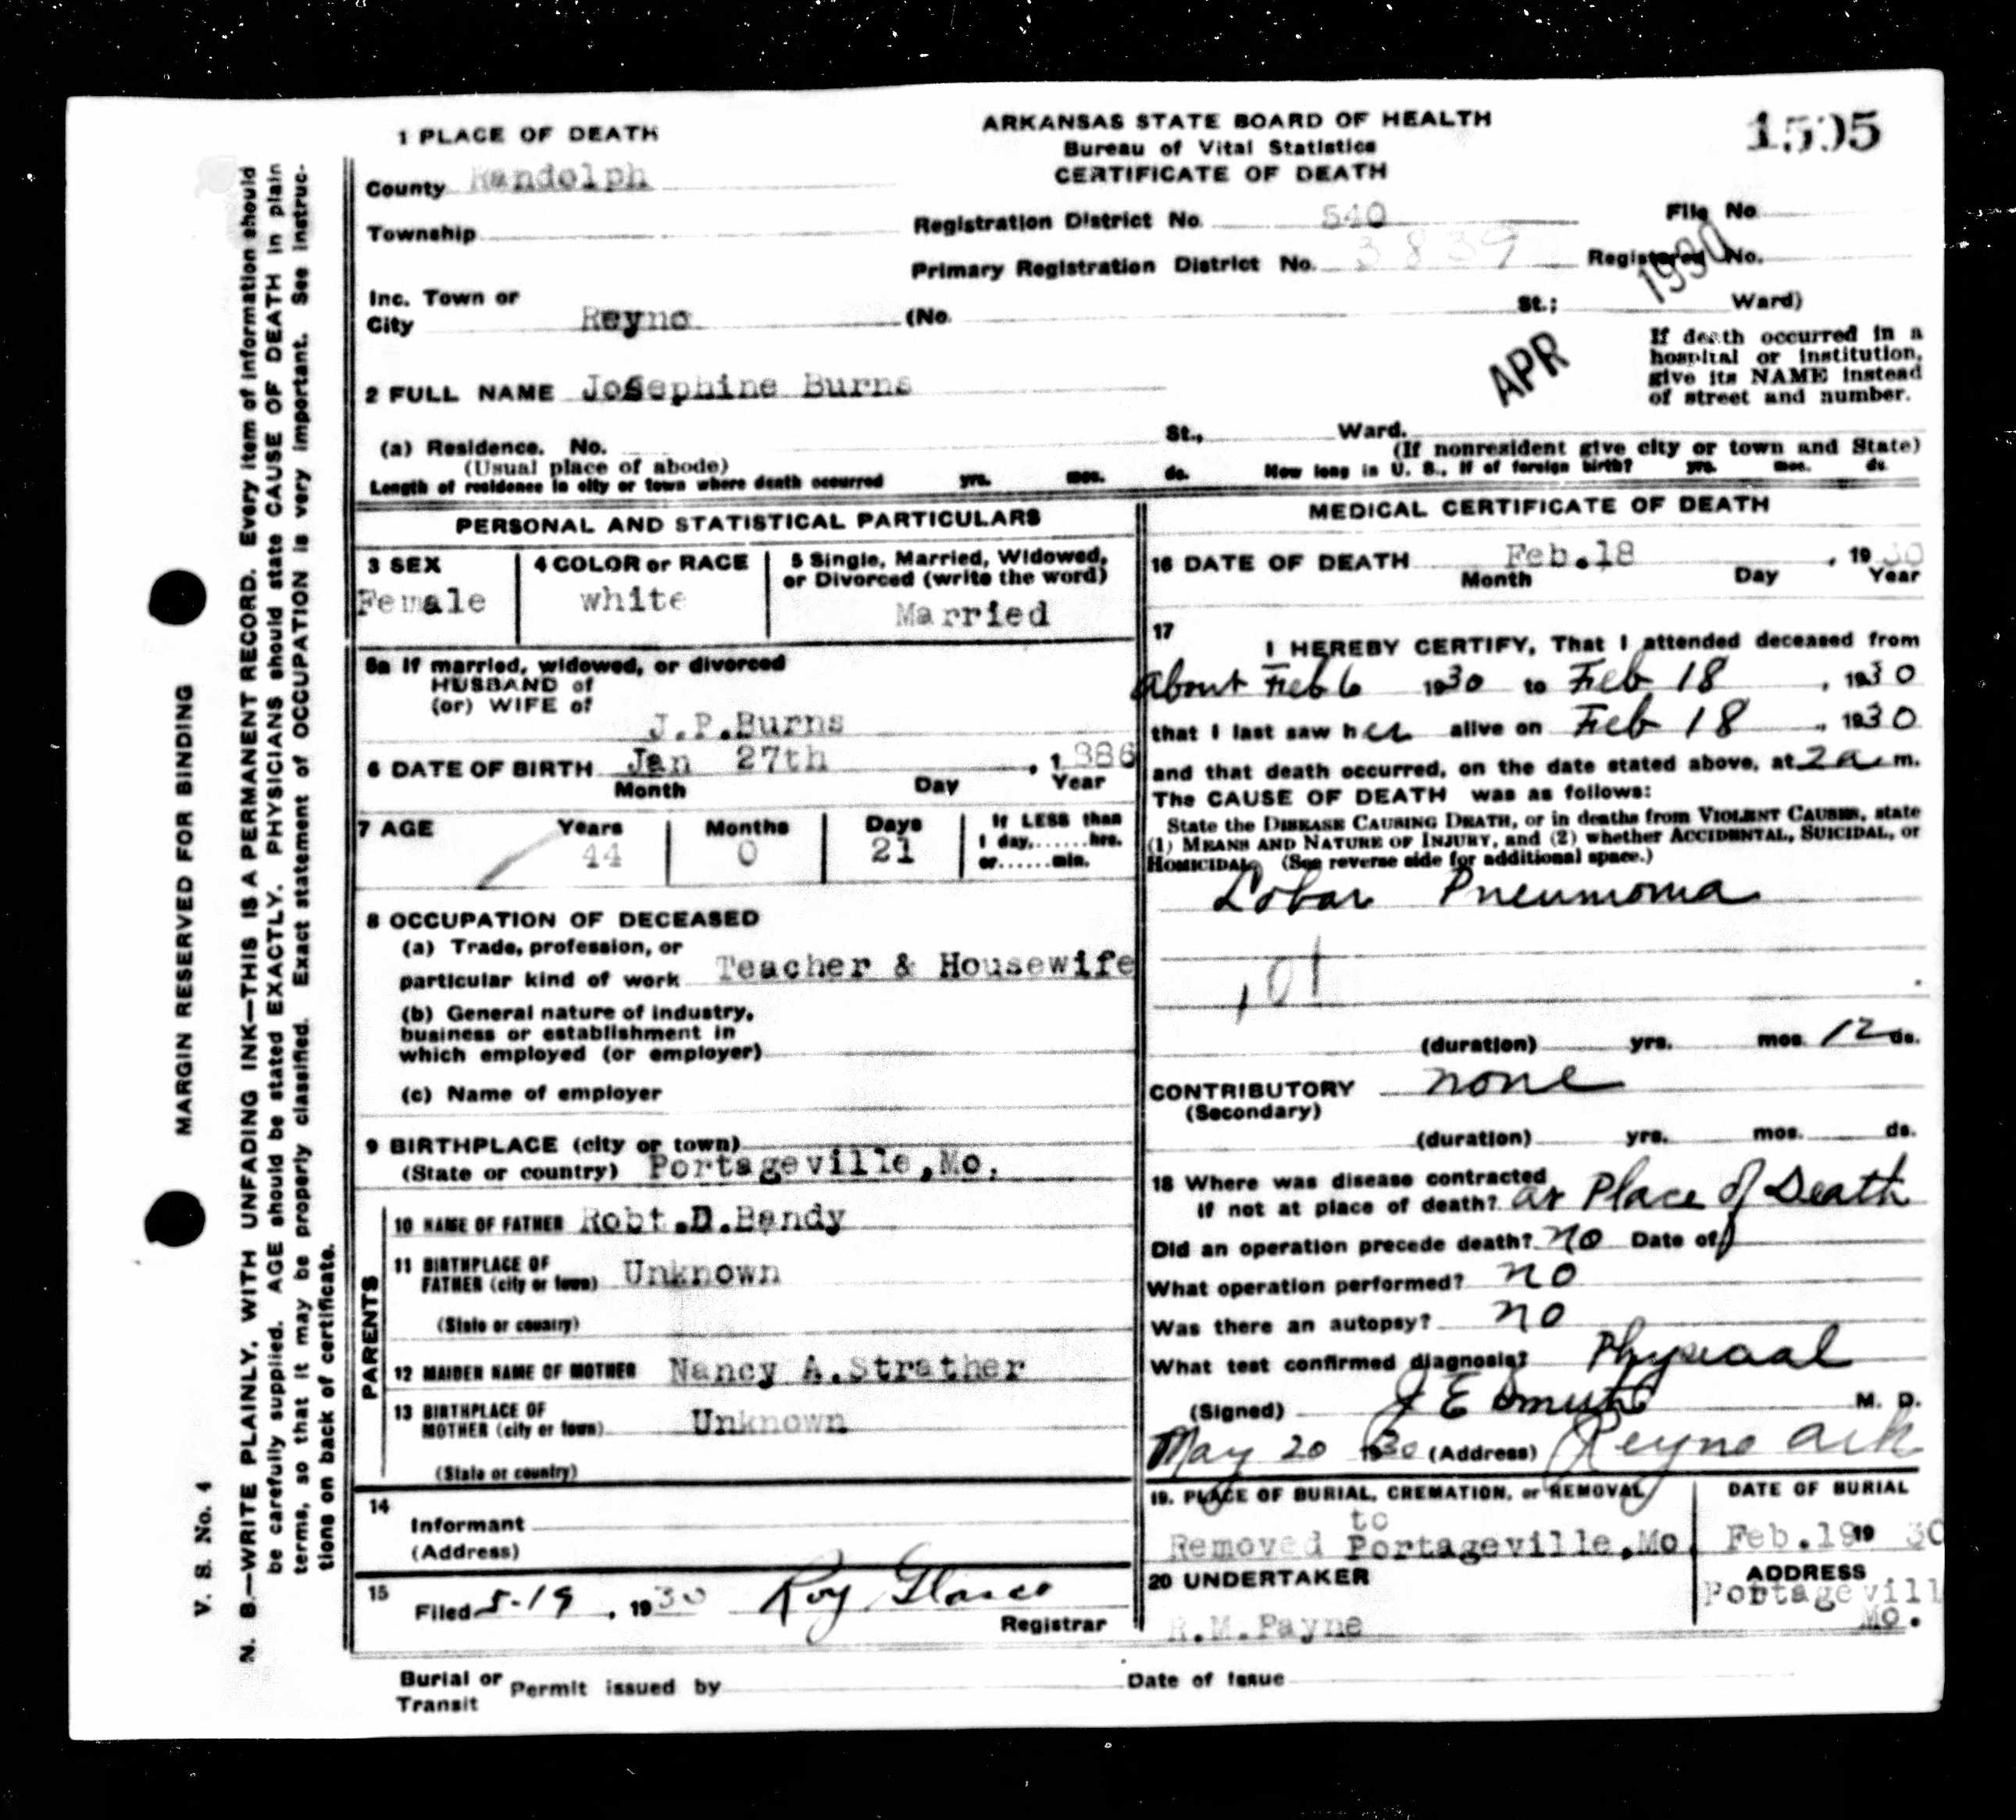 1 PLACE OF DEATH
ARKANSAS STATE BOARD OF HEALTH
Bureau of Vital Statistics
CERTIFICATE OF DEATH
County Randolph
Township
Registration District No. 540
File No.
Primary Registration District No. 3839
Registered No.
1930
APR
Inc. Town or
City Reyno (No. St.; Ward)
If death occurred in a
hospital or institution,
give its NAME instead
of street and number.
2 FULL NAME Josephine Burns
(a) Residence. No. St., Ward.
(Usual place of abode) (If nonresident give city or town and State)
Length of residence in city or town where death occurred yrs. mos. ds. How long in U. S., if of foreign birth? yrs. mos. ds.
PERSONAL AND STATISTICAL PARTICULARS
3 SEX
Female
4 COLOR or RACE
white
5 Single, Married, Widowed,
or Divorced (write the word)
Married
5a If married, widowed, or divorced
HUSBAND of
(or) WIFE of
J.P.Burns
6 DATE OF BIRTH Jan 27th , 1 886
Month Day Year
7 AGE Years Months Days If LESS than
44 0 21 1 day,......hrs.
or......min.
8 OCCUPATION OF DECEASED
(a) Trade, profession, or
particular kind of work Teacher & Housewife
(b) General nature of industry,
business or establishment in
which employed (or employer)
(c) Name of employer
9 BIRTHPLACE (city or town)
(State or country) Portageville,Mo.
PARENTS
10 NAME OF FATHER Robt.D.Bandy
11 BIRTHPLACE OF
FATHER (city or town) Unknown
(State or country)
12 MAIDEN NAME OF MOTHER Nancy A.Strather
13 BIRTHPLACE OF
MOTHER (city or town) Unknown
(State or country)
14
Informant
(Address)
15
Filed 5-19, 1930 Roy Glasco
Registrar
MEDICAL CERTIFICATE OF DEATH
16 DATE OF DEATH Feb.18 , 19 30
Month Day Year
17
I HEREBY CERTIFY, That I attended deceased from
about Feb 6 1930 to Feb 18 , 1930
that I last saw her alive on Feb 18 , 1930
and that death occurred, on the date stated above, at 2 a. m.
The CAUSE OF DEATH was as follows:
State the DISEASE CAUSING DEATH, or in deaths from VIOLENT CAUSES, state
(1) MEANS AND NATURE OF INJURY, and (2) whether ACCIDENTAL, SUICIDAL, or
HOMICIDAL. (See reverse side for additional space.)
Lobar Pneumonia
101
(duration) yrs. mos. 12 ds.
CONTRIBUTORY none
(Secondary)
(duration) yrs. mos. ds.
18 Where was disease contracted
if not at place of death? at Place of Death
Did an operation precede death? no Date of
What operation performed? no
Was there an autopsy? no
What test confirmed diagnosis? Physical
(Signed) J E Smith M. D.
May 20 1930 (Address) Reyno Ark
19. PLACE OF BURIAL, CREMATION, or REMOVAL
to
Removed Portageville,Mo.
DATE OF BURIAL
Feb.19 19 30
20 UNDERTAKER
R.M.Payne
ADDRESS
Portagevill
Mo.
Burial or
Transit Permit issued by Date of Issue
MARGIN RESERVED FOR BINDING
V. S. No. 4
N. B.—WRITE PLAINLY, WITH UNFADING INK—THIS IS A PERMANENT RECORD. Every item of information should
be carefully supplied. AGE should be stated EXACTLY. PHYSICIANS should state CAUSE OF DEATH in plain
terms, so that it may be properly classified. Exact statement of OCCUPATION is very important. See instruc-
tions on back of certificate.